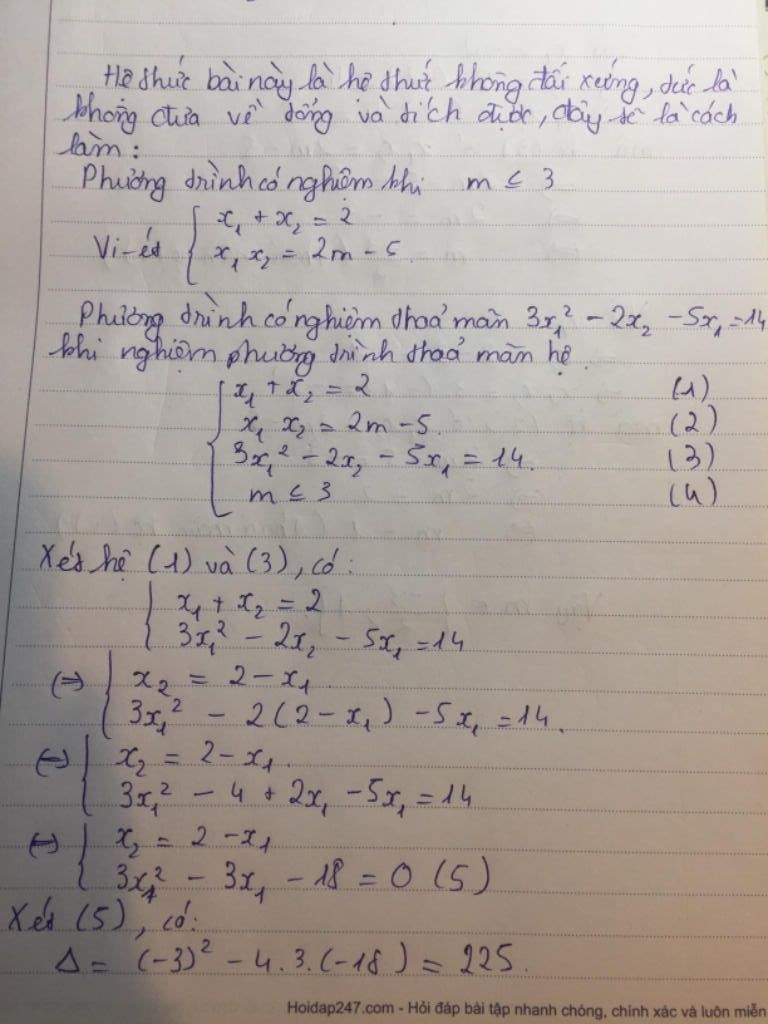 Hệ thức bài này là hệ thức không đối xứng, tức là
không đưa về tổng và tích được, đây sẽ là cách
làm :
Phương trình có nghiệm khi m ≤ 3
Vi-ét { x₁ + x₂ = 2
x₁ x₂ = 2m - 5.
Phương trình có nghiệm thoả mãn 3x₁² - 2x₂ - 5x₁ = 14
khi nghiệm phương trình thoả mãn hệ
{ x₁ + x₂ = 2 (1)
x₁ x₂ = 2m - 5. (2)
3x₁² - 2x₂ - 5x₁ = 14. (3)
m ≤ 3 (4)
Xét hệ (1) và (3), có:
{ x₁ + x₂ = 2
3x₁² - 2x₂ - 5x₁ = 14
(=) { x₂ = 2 - x₁.
3x₁² - 2(2 - x₁) - 5x₁ = 14.
(=) { x₂ = 2 - x₁.
3x₁² - 4 + 2x₁ - 5x₁ = 14
(=) { x₂ = 2 - x₁
3x₁² - 3x₁ - 18 = 0 (5)
Xét (5), có:
Δ = (-3)² - 4.3.(-18) = 225.
Hoidap247.com - Hỏi đáp bài tập nhanh chóng, chính xác và luôn miễn